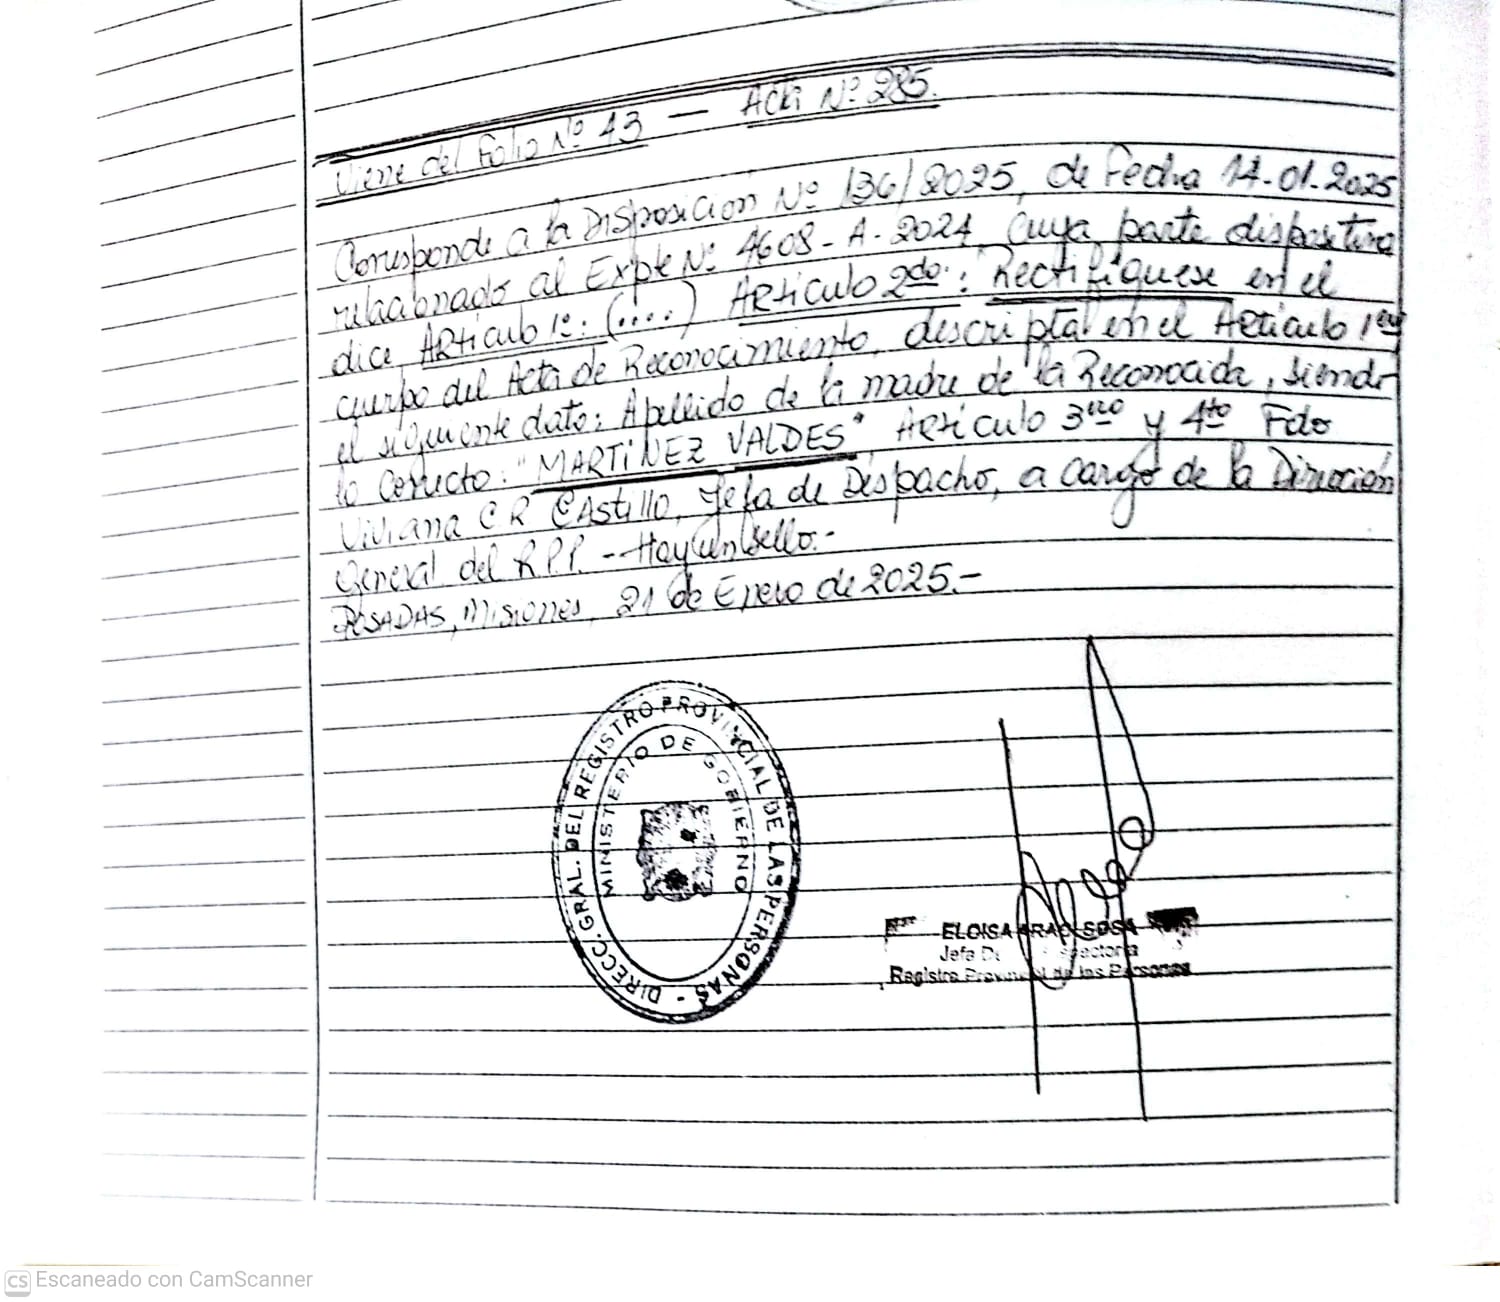 Viene del Folio Nº 43 — Acta Nº 285.
Corresponde a la Disposición Nº 136/2025, de fecha 14-01-2025
relacionado al Expte Nº 4608-A-2024, cuya parte dispositiva
dice Artículo 1º: (....) Artículo 2do: Rectifíquese en el
cuerpo del Acta de Reconocimiento, descripta en el Artículo 1ero
el siguiente dato: Apellido de la madre de la Reconocida, siendo
lo correcto: "MARTÍNEZ VALDES" Artículo 3ero y 4to Fdo
Viviana C R Castillo, Jefa de Despacho, a cargo de la Dirección
General del R.P.P. -- Hay un sello.-
POSADAS, Misiones, 21 de Enero de 2025.-
DIRECC. GRAL. DEL REGISTRO PROVINCIAL DE LAS PERSONAS -
MINISTERIO DE GOBIERNO
ELOISA SOSA
Jefa
Registro Provincial de las Personas
CS Escaneado con CamScanner